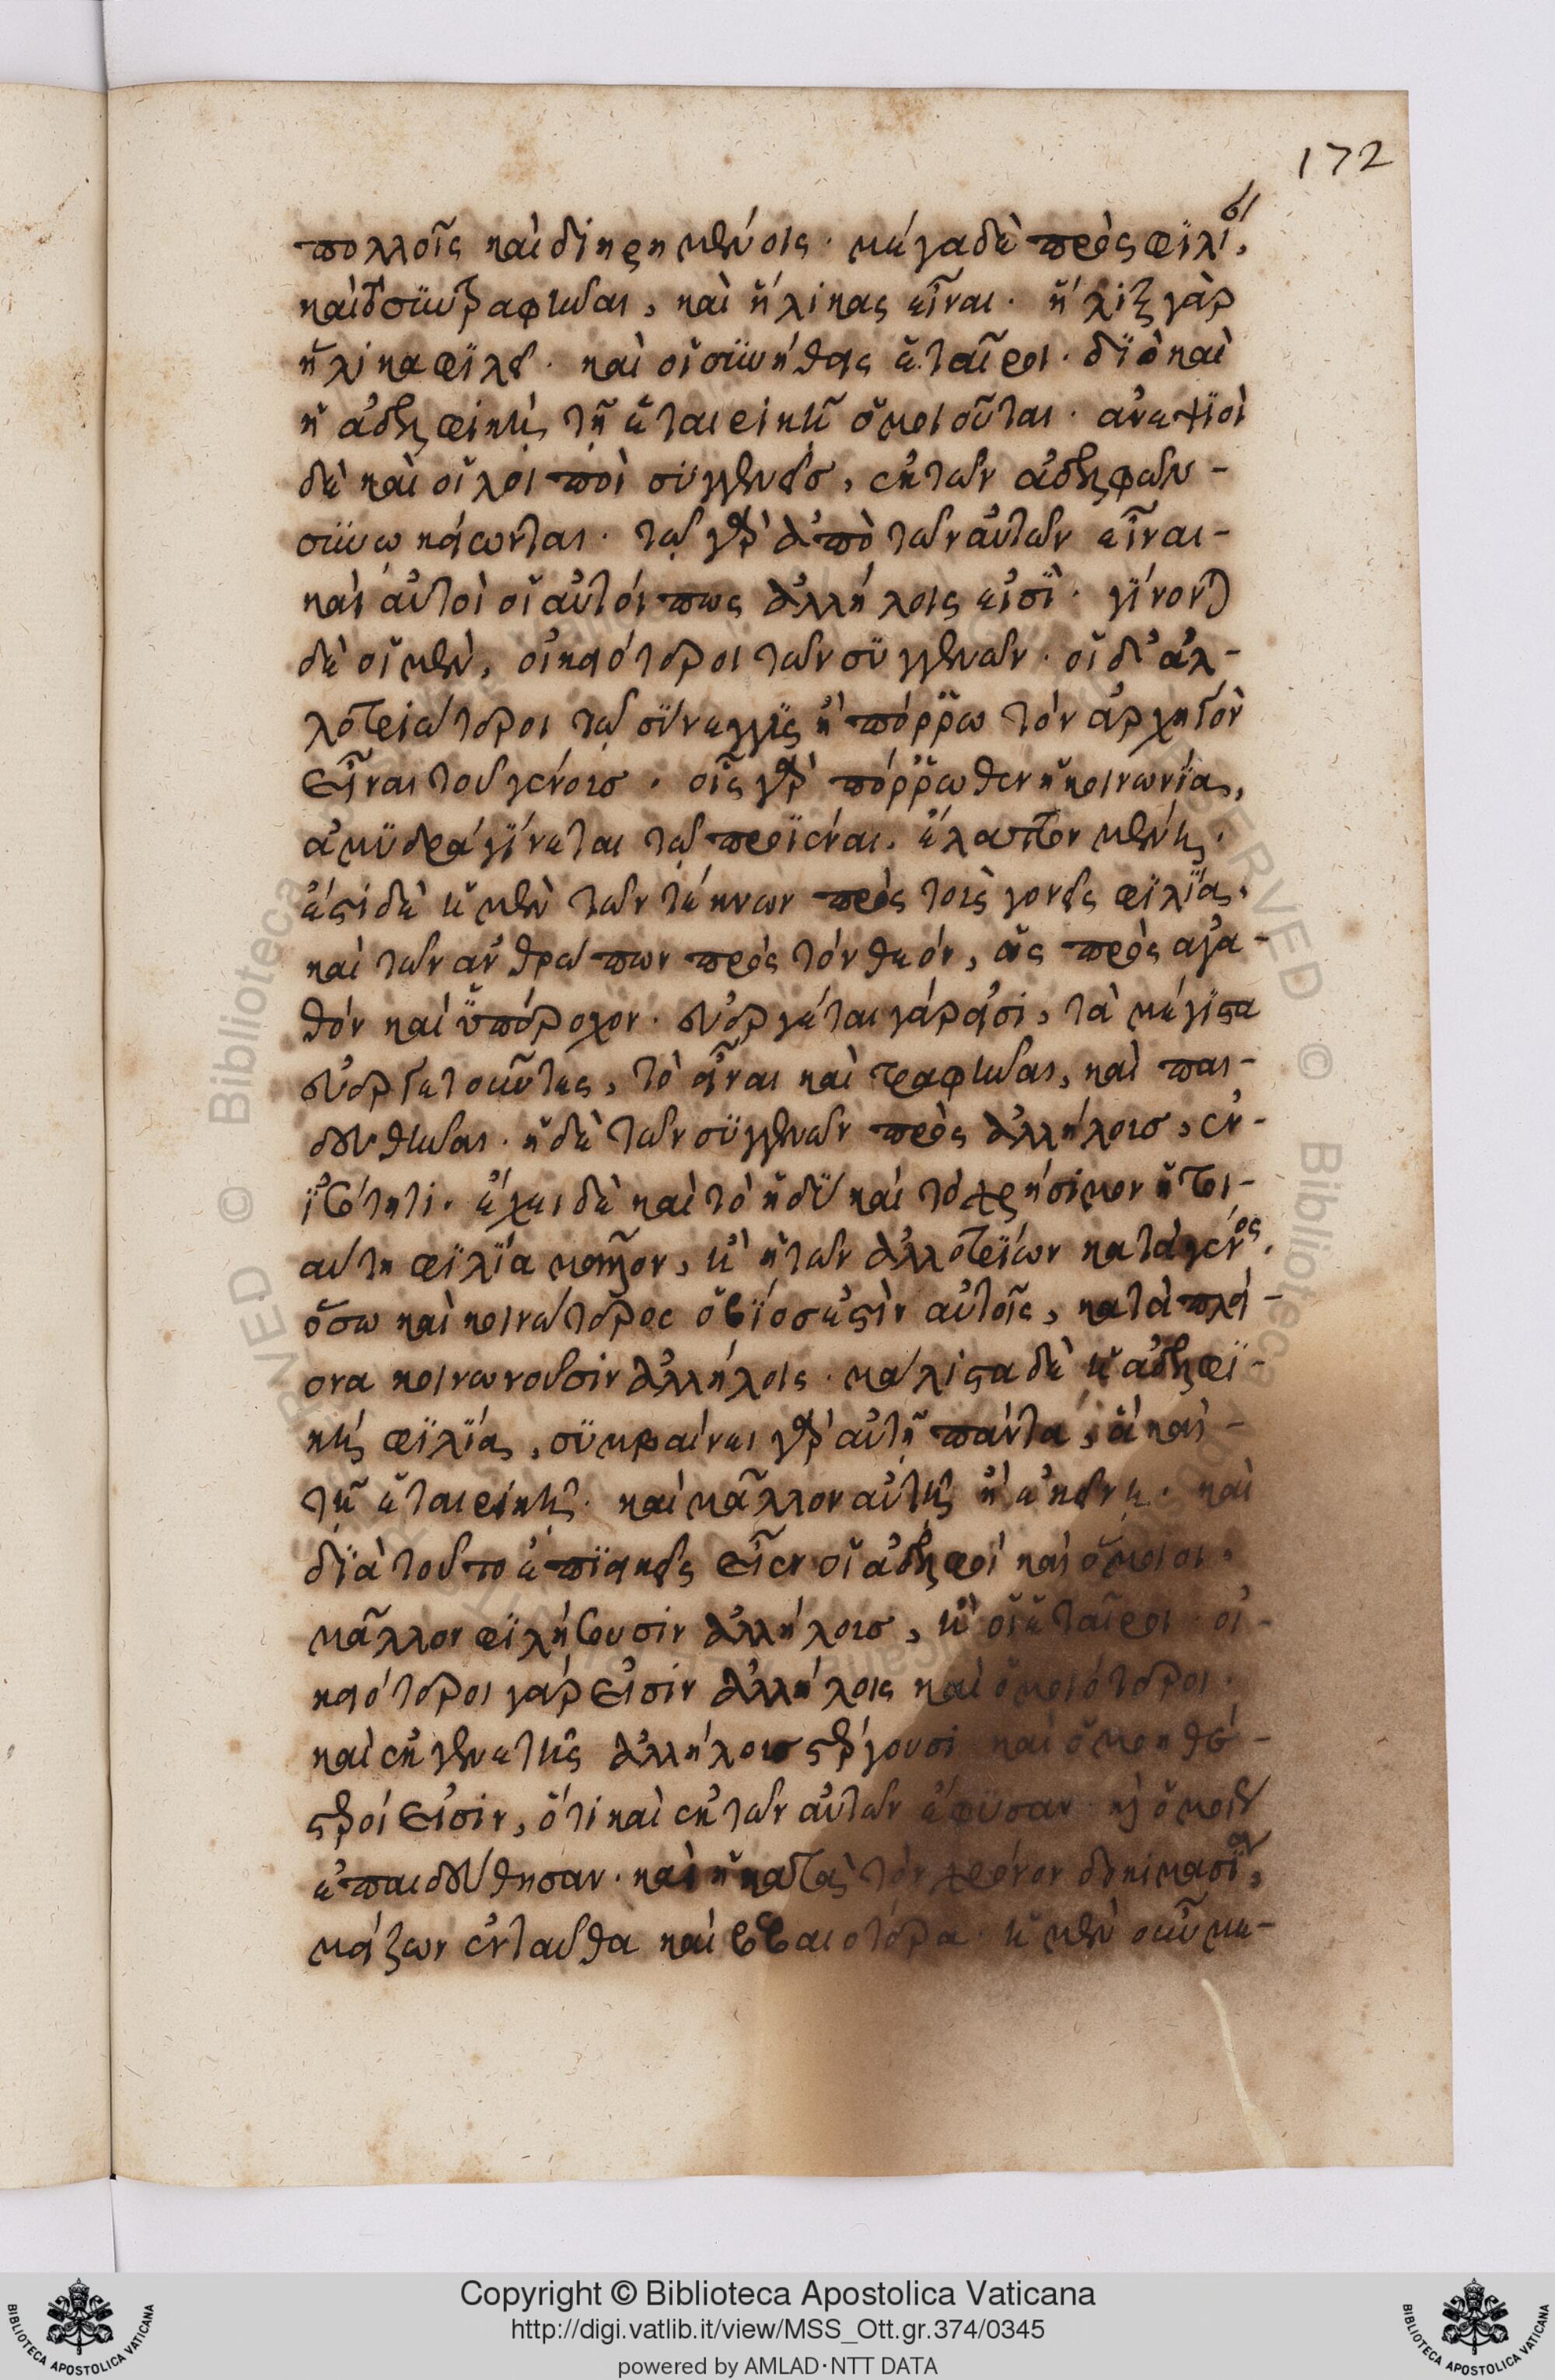 172
πολλοῖς καὶ διῃρημένοις. μέγα δὲ πρὸς φιλί,
καὶ τὸ συντραφῆναι, καὶ ἥλικας εἶναι. ἥλιξ γὰρ
ἥλικα φιλεῖ. καὶ οἱ συνήθεις ἑταῖροι. διὸ καὶ
ἡ ἀδελφικὴ τῇ ἑταιρικῇ ὁμοιοῦται. ἀνεψιοὶ
δὲ καὶ οἱ λοιποὶ συγγενεῖς, ἐκ τῶν ἀδελφῶν -
συνῳκείωνται. τῷ γὰρ ἀπὸ τῶν αὐτῶν εἶναι -
καὶ αὐτοὶ οἱ αὐτοί πως ἀλλήλοις εἰσὶ. γίνονται
δὲ οἱ μὲν, οἰκειότεροι τῶν συγγενῶν. οἱ δ' ἀλ-
λοτριώτεροι τῷ σύνεγγυς ἢ πόῤῥω τὸν ἀρχηγὸν
εἶναι τοῦ γένους. οἷς γὰρ πόῤῥωθεν ἡ κοινωνία,
ἀμυδρὰ γίνεται τῷ προϊέναι. ἔλαττον μένει.
ἔστι δὲ ἡ μὲν τῶν τέκνων πρὸς τοὺς γονεῖς φιλία,
καὶ τῶν ἀνθρώπων πρὸς τὸν θεόν, ὡς πρὸς ἀγα-
θόν καὶ ὑπέροχον. εὐεργέται γάρ εἰσι, τὰ μέγιστα
εὐεργετοῦντες, τὸ εἶναι καὶ τραφῆναι, καὶ παι-
δευθῆναι. ἡ δὲ τῶν συγγενῶν πρὸς ἀλλήλους, ἐν -
ἰσότητι. ἔχει δὲ καὶ τὸ ἡδὺ καὶ τὸ χρήσιμον ἡ τοι-
αύτη φιλία μᾶλλον, ἢ ἡ τῶν ἀλλοτρίων κατὰ γένος.
ὅσῳ καὶ κοινότερος ὁ βίος ἐστὶν αὐτοῖς, κατὰ πλεί-
ονα κοινωνοῦσιν ἀλλήλοις. μάλιστα δὲ ἡ ἀδελφι-
κὴ φιλία, συμβαίνει γὰρ αὐτῇ πάντα, ἃ καὶ -
τῇ ἑταιρικῇ. καὶ μᾶλλον αὐτῇ ἢ ἐκείνῃ. καὶ
διὰ τοῦτο ἐπιεικεῖς εἶεν οἱ ἀδελφοὶ καὶ ὅμοιοι.
μᾶλλον φιλήσουσιν ἀλλήλους, ἢ οἱ ἑταῖροι. οἰ-
κειότεροι γάρ εἰσιν ἀλλήλοις καὶ ὁμοιότεροι.
καὶ ἐκ γενετῆς ἀλλήλους στέργουσι καὶ ὁμοηθέ-
στεροί εἰσιν, ὅτι καὶ ἐκ τῶν αὐτῶν ἔφυσαν. καὶ ὁμοίως
ἐπαιδεύθησαν. καὶ ἡ κατὰ τὸν χρόνον δοκιμασία,
μείζων ἐνταῦθα καὶ βεβαιοτέρα. ἡ μὲν οὖν με-
Copyright © Biblioteca Apostolica Vaticana
http://digi.vatlib.it/view/MSS_Ott.gr.374/0345
powered by AMLAD·NTT DATA